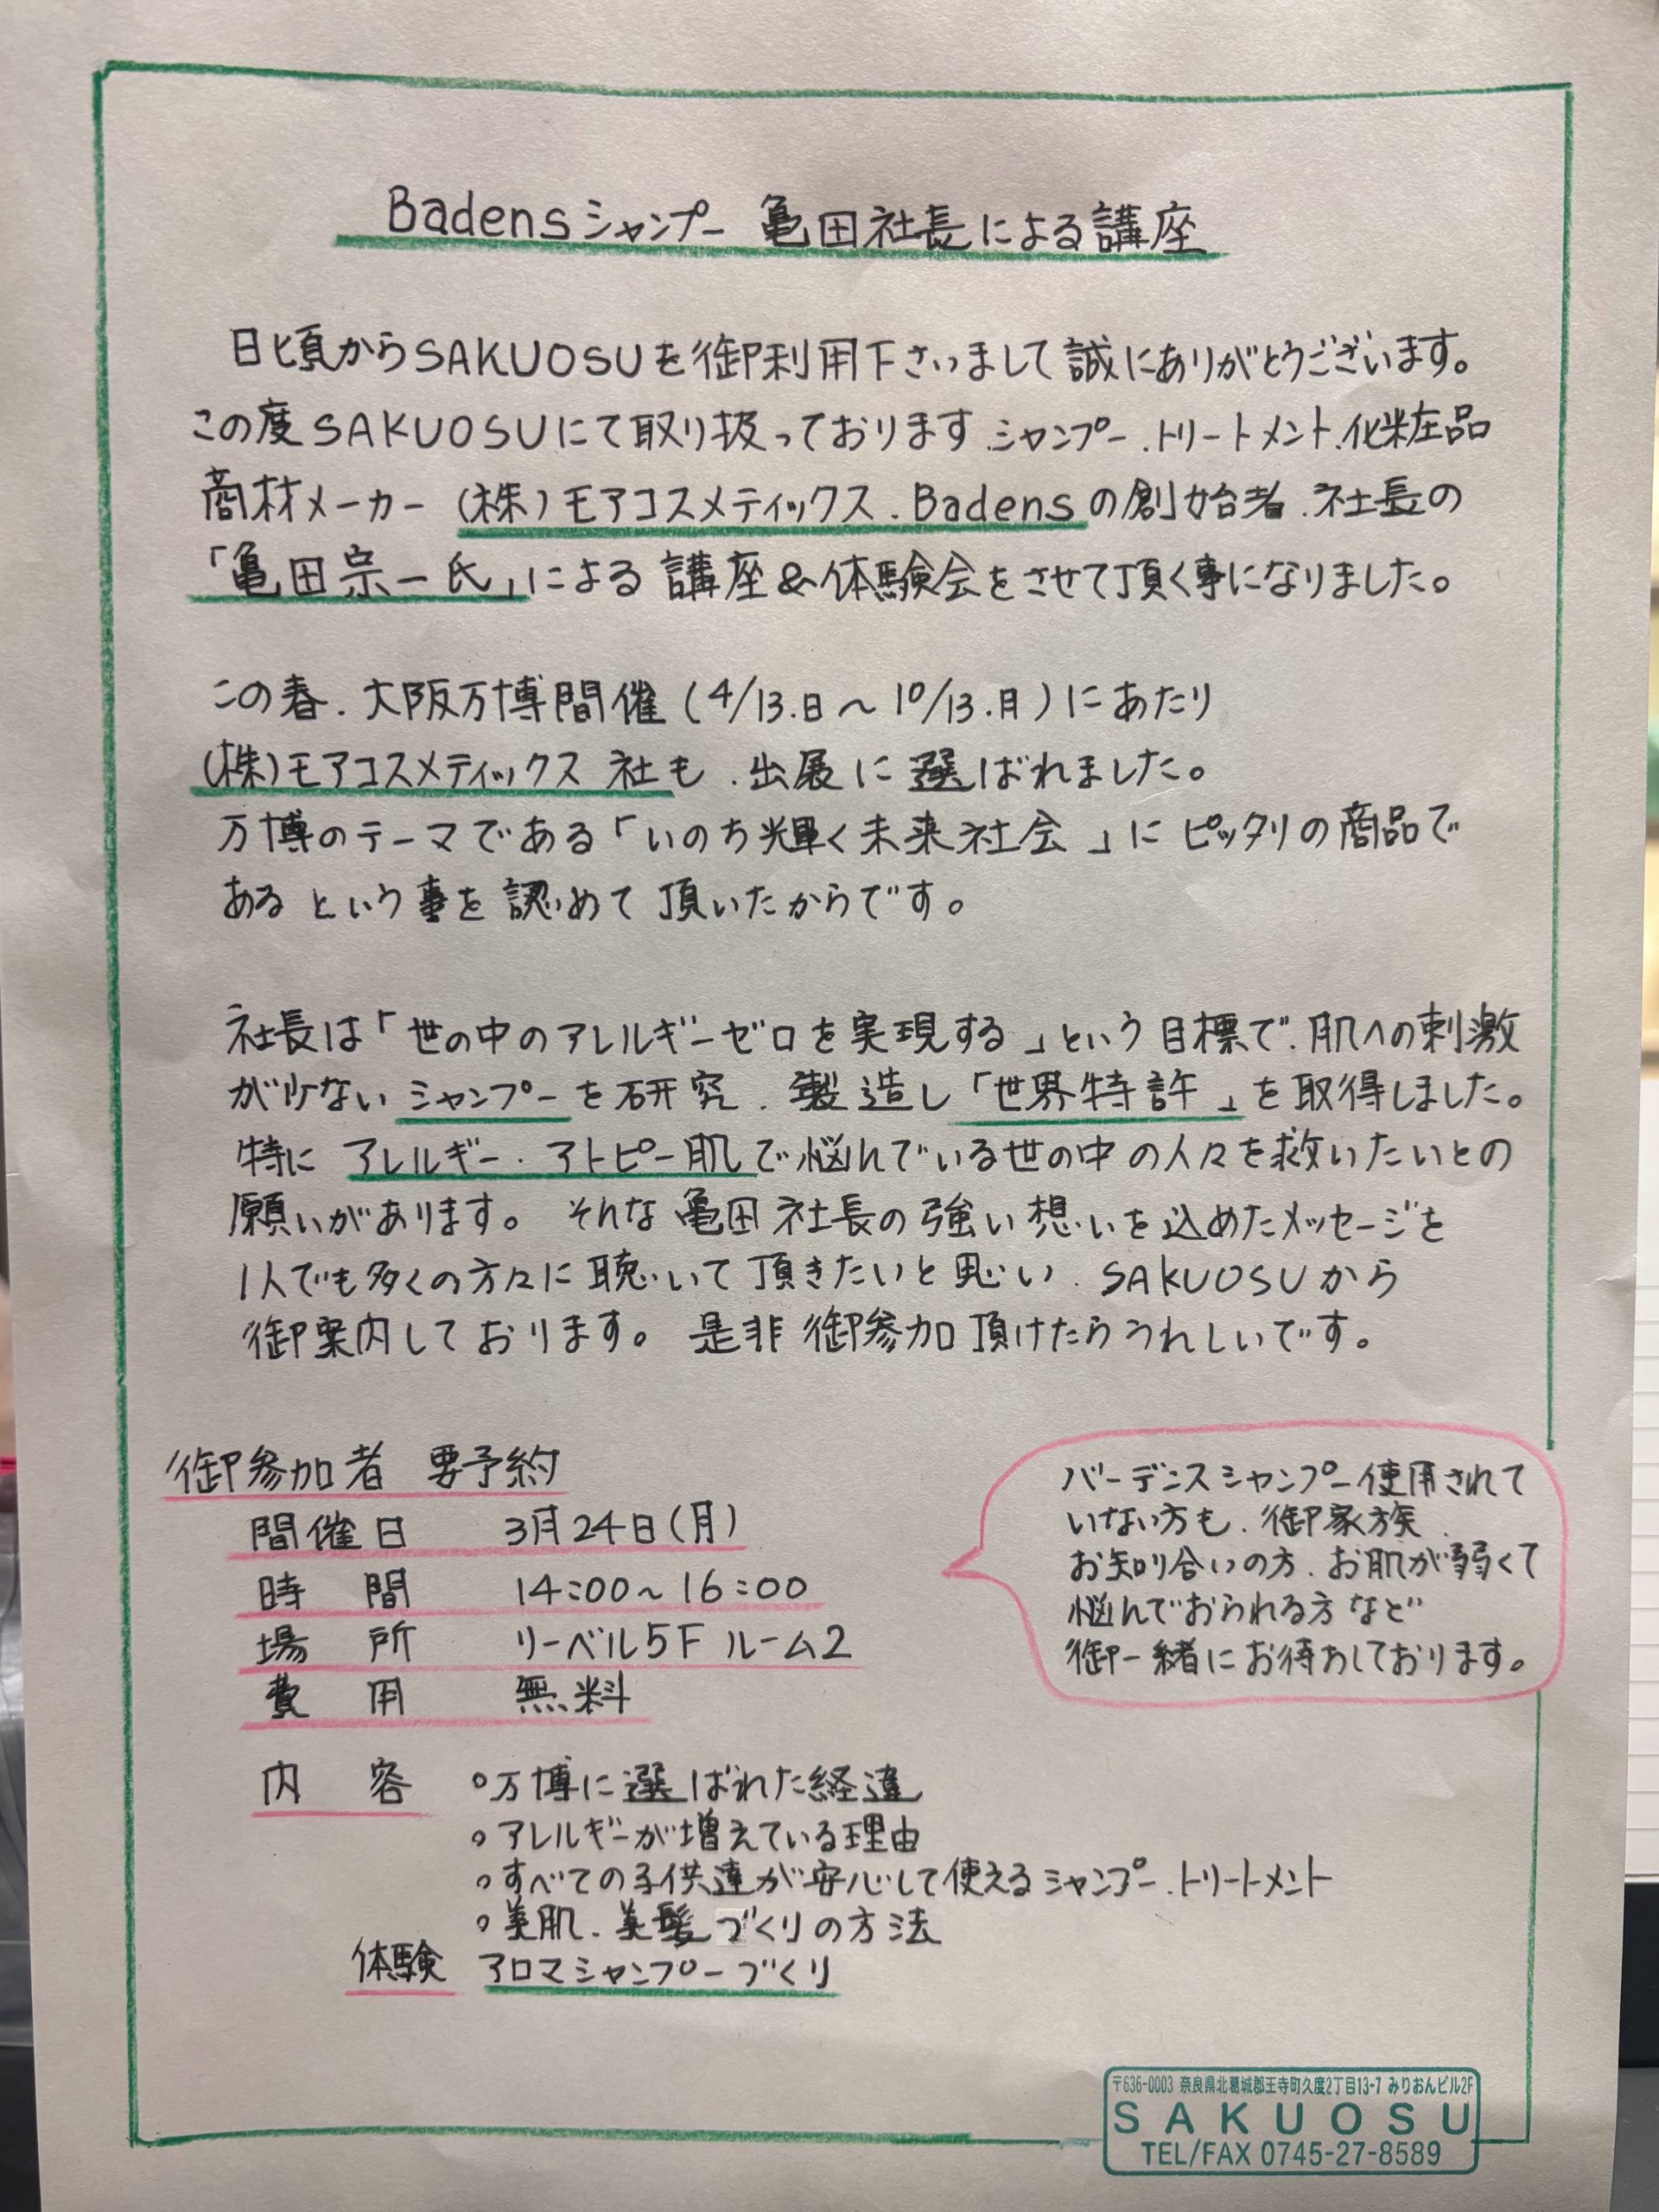 Badensシャンプー 亀田社長による講座
日頃からSAKUOSUを御利用下さいまして誠にありがとうございます。
この度SAKUOSUにて取り扱っております.シャンプー.トリートメント.化粧品
商材メーカー (株)モアコスメティックス.Badensの創始者.社長の
「亀田宗一氏」による講座&体験会をさせて頂く事になりました。
この春.大阪万博開催(4/13.日〜10/13.月)にあたり
(株)モアコスメティックス社も.出展に選ばれました。
万博のテーマである「いのち輝く未来社会」にピッタリの商品で
あるという事を認めて頂いたからです。
社長は「世の中のアレルギーゼロを実現する」という目標で.肌への刺激
が少ないシャンプーを研究.製造し「世界特許」を取得しました。
特にアレルギー.アトピー肌で悩んでいる世の中の人々を救いたいとの
願いがあります。そんな亀田社長の強い想いを込めたメッセージを
1人でも多くの方々に聴いて頂きたいと思い.SAKUOSUから
御案内しております。是非御参加頂けたらうれしいです。
御参加者 要予約
開催日 3月24日(月)
時間 14:00〜16:00
場所 リーベル5F ルーム2
費用 無料
バーデンスシャンプー使用されて
いない方も.御家族.
お知り合いの方.お肌が弱くて
悩んでおられる方など
御一緒にお待ちしております。
内容 ○万博に選ばれた経違
○アレルギーが増えている理由
○すべての子供達が安心して使えるシャンプー.トリートメント
○美肌.美髪づくりの方法
体験 アロマシャンプーづくり
〒636-0003 奈良県北葛城郡王寺町久度2丁目13-7 みりおんビル2F
SAKUOSU
TEL/FAX 0745-27-8589